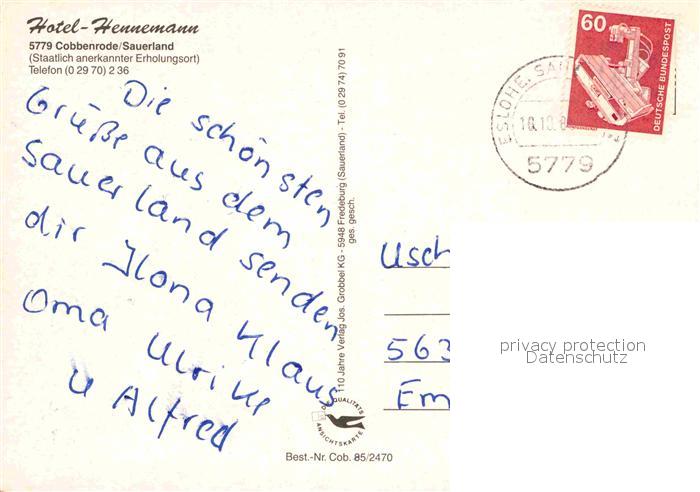 Hotel-Hennemann
5779 Cobbenrode/Sauerland
(Staatlich anerkannter Erholungsort)
Telefon (0 29 70) 2 36
Die schönsten
Grüße aus dem
Sauerland senden
dir Ilona Klaus
Oma Ulrike
u Alfred
110 Jahre Verlag Jos. Grobbel KG - 5948 Fredeburg (Sauerland) - Tel. (0 29 74) 70 91
ges. gesch.
QUALITÄTS
ANSICHTSKARTE
Best.-Nr. Cob. 85/2470
60
DEUTSCHE BUNDESPOST
ESLOHE, SAU
5779
Usch
563
Em
privacy protection
Datenschutz